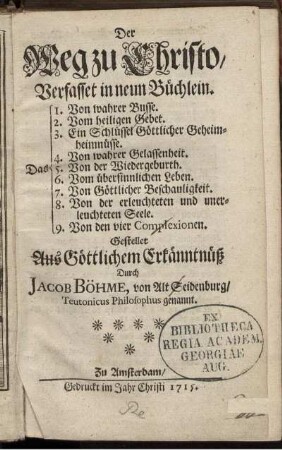 Der
Weg zu Christo/
Verfasset in neun Büchlein.
1. Von wahrer Busse.
2. Vom heiligen Gebet.
3. Ein Schlüssel Göttlicher Geheim-
heimnüsse.
4. Von wahrer Gelassenheit.
Das 5. Von der Wiedergeburth.
6. Vom übersinnlichen Leben.
7. Von Göttlicher Beschauligkeit.
8. Von der erleuchteten und uner-
leuchteten Seele.
9. Von den vier Complexionen.
Gestellet
Aus Göttlichem Erkänntnüß
Durch
JACOB BÖHME, von Alt Seidenburg/
Teutonicus Philosophus genannt.
EX
BIBLIOTHECA
REGIA ACADEM.
GEORGIAE
AUG.
Zu Amsterdam/
Gedruckt im Jahr Christi 1715.